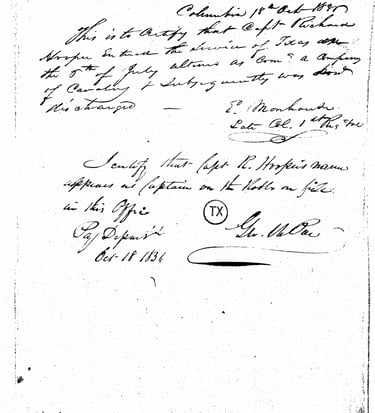 Columbia 18th Oct 1836
This is to Certify that Capt Richard
Hooper Entered the Service of Texas
the 6th of July ultimo as Com'g a Company
of Cavalry & Subsequently was
discharged —
E. Morehouse
Late Col. 1st Reg
I certify that Capt R. Hooper's name
appears as Captain on the Rolls on file
in this Office
TX
Pay Depm't
Oct 18 1836
Geo. W. Poe